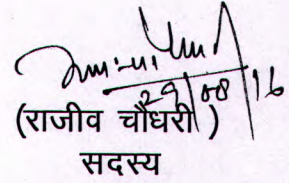 29/08/16
(राजीव चौधरी)
सदस्य